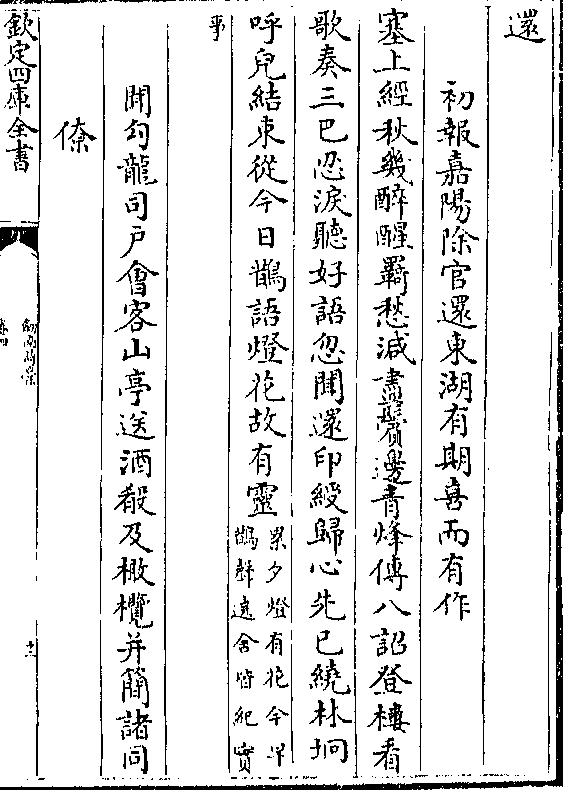 還
初報嘉陽除官還東湖有期喜而有作
塞上經秋幾醉醒羈愁減盡鬢邊青烽傳八詔登樓看
歌奏三巴忍淚聽好語忽聞還印綬歸心先已繞林坰
呼兒結束從今日鵲語燈花故有靈
累夕燈有花今早
鵲群遶舍皆紀實
事
聞勾龍司戶會客山亭送酒殽及橄欖并簡諸同
僚
欽定四庫全書
劍南詩藁
卷四